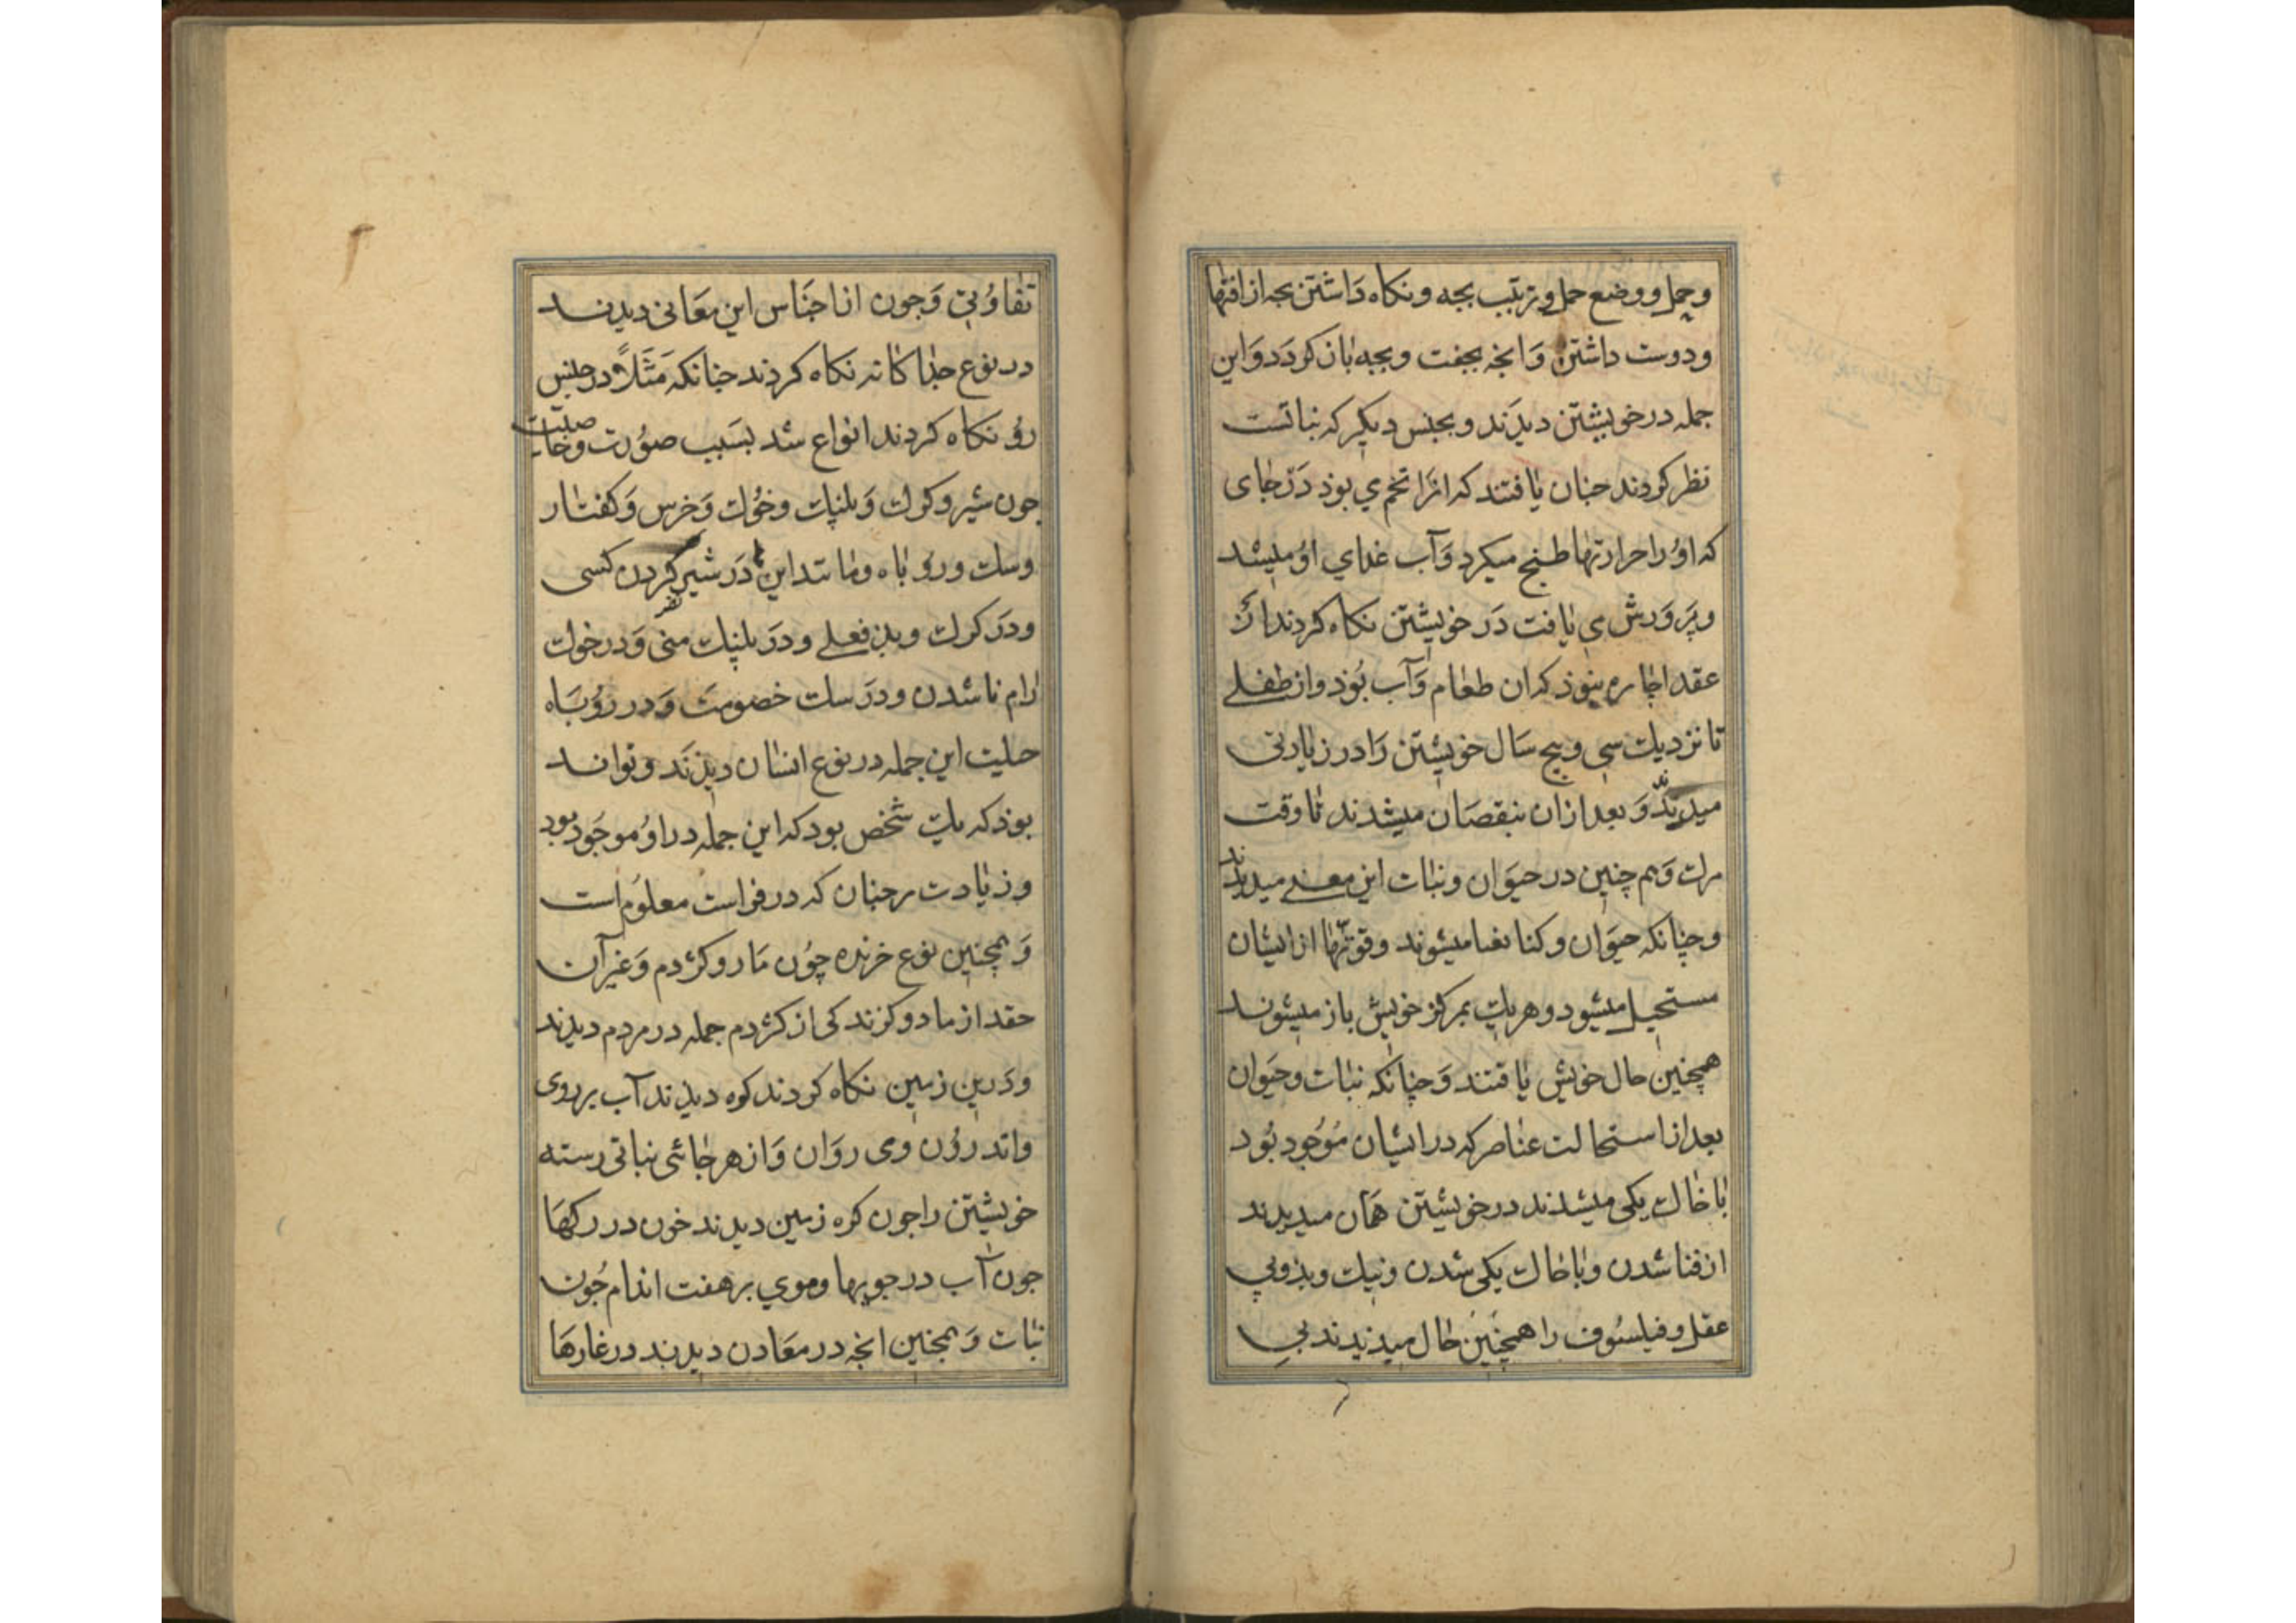 و حمل و وضع حمل و ترتیب بجه و نکاه دَاشتن بجه از افتها
و دوست داشتن وَ انجه بجفت و بجه بٰاز کردَد وَ این
جمله در خویشتن دیدَند و بجنس دیکر که نباتست
نظر کردند جنان یٰافتند که انرَا تخمي بوذ دَر جٰای
که اوُ را حرارتها طبخ میکرد وَ آب غدای اوُ میشد
و پَروَرش می یٰافت دَر خویشتن نکاه کردند از
عقد اجاره بنوذ که ان طعٰام وَ آب بُوذ و از طفلے
تا نزدیك سی و پیج سَال خویشتن رَا در زیٰادتی
میدیدند وَ بعد ازان بنقصَان میشدند تٰا وقت
مرك وَ هم چنین در حیوَان و نبٰات این معنے میدیدند
و چنانکه حیوَان و کنا بفنا میشوند و قوتّهٰا از ایشان
مستحیل میشود و هر یك بمرکز خویش باز میشوند
همچنین حال خویش یٰافتند وَ چنانکه نبٰات و حیَوان
بعد از استحالت عنٰاصر که در ایشان مُوجُود بُود
بٰا خٰاك یکی میشدند در خویشتن همَان میدیدند
از فنا شدن و بٰا خٰاك یکی شدن و نیك و بذ و بی
عقل و فیلسُوف را همچنین حٰال میدیدند بی
تفاوُتی وَ جون از اجنَاس این معَانی دیدند
در نوع جذا کٰانه نکاه کردند جنانکه مَثَلاً در جنس
رو نکاه کردند انواع شد بسَبب صوُرت و خاصیّت
جون شیر و کرك وَ بلنك و خُوك وَ خرس وَ کفتٰار
و سك و روُبٰاه و مٰانند این دَر شیر کردن کسی
و دَر کرك و بد فعلے و دَر بلنك منی وَ در خوك
رٰام نا شدن و دَر سك خصومت وَ در روُبَاه
حلیت این جمله در نوع انسٰان دیذَند و تواند
بوذ که یك شخص بود که این جمله در اوُ موجَود بود
و زیٰادت بر جنان که در فراست معلوُم است
وَ همچنین نوع خزنده چوُن مَار و کژدم وَ غیر آن
حقد از مار و کزند کی از کژدم جمله در مردم دیدند
و دَرین زمین نکاه کردند کوه دیدند آب بر روی
و اندرؤن وی روَان وَ از هر جٰائی نباتی رسته
خویشتن را جون کره زمین دیدند خون در رکهَا
جون آب در جویها و موی بر هفت اندام جُون
نبٰات وَ همجنین انجه در معَادن دیدند در غارهَا